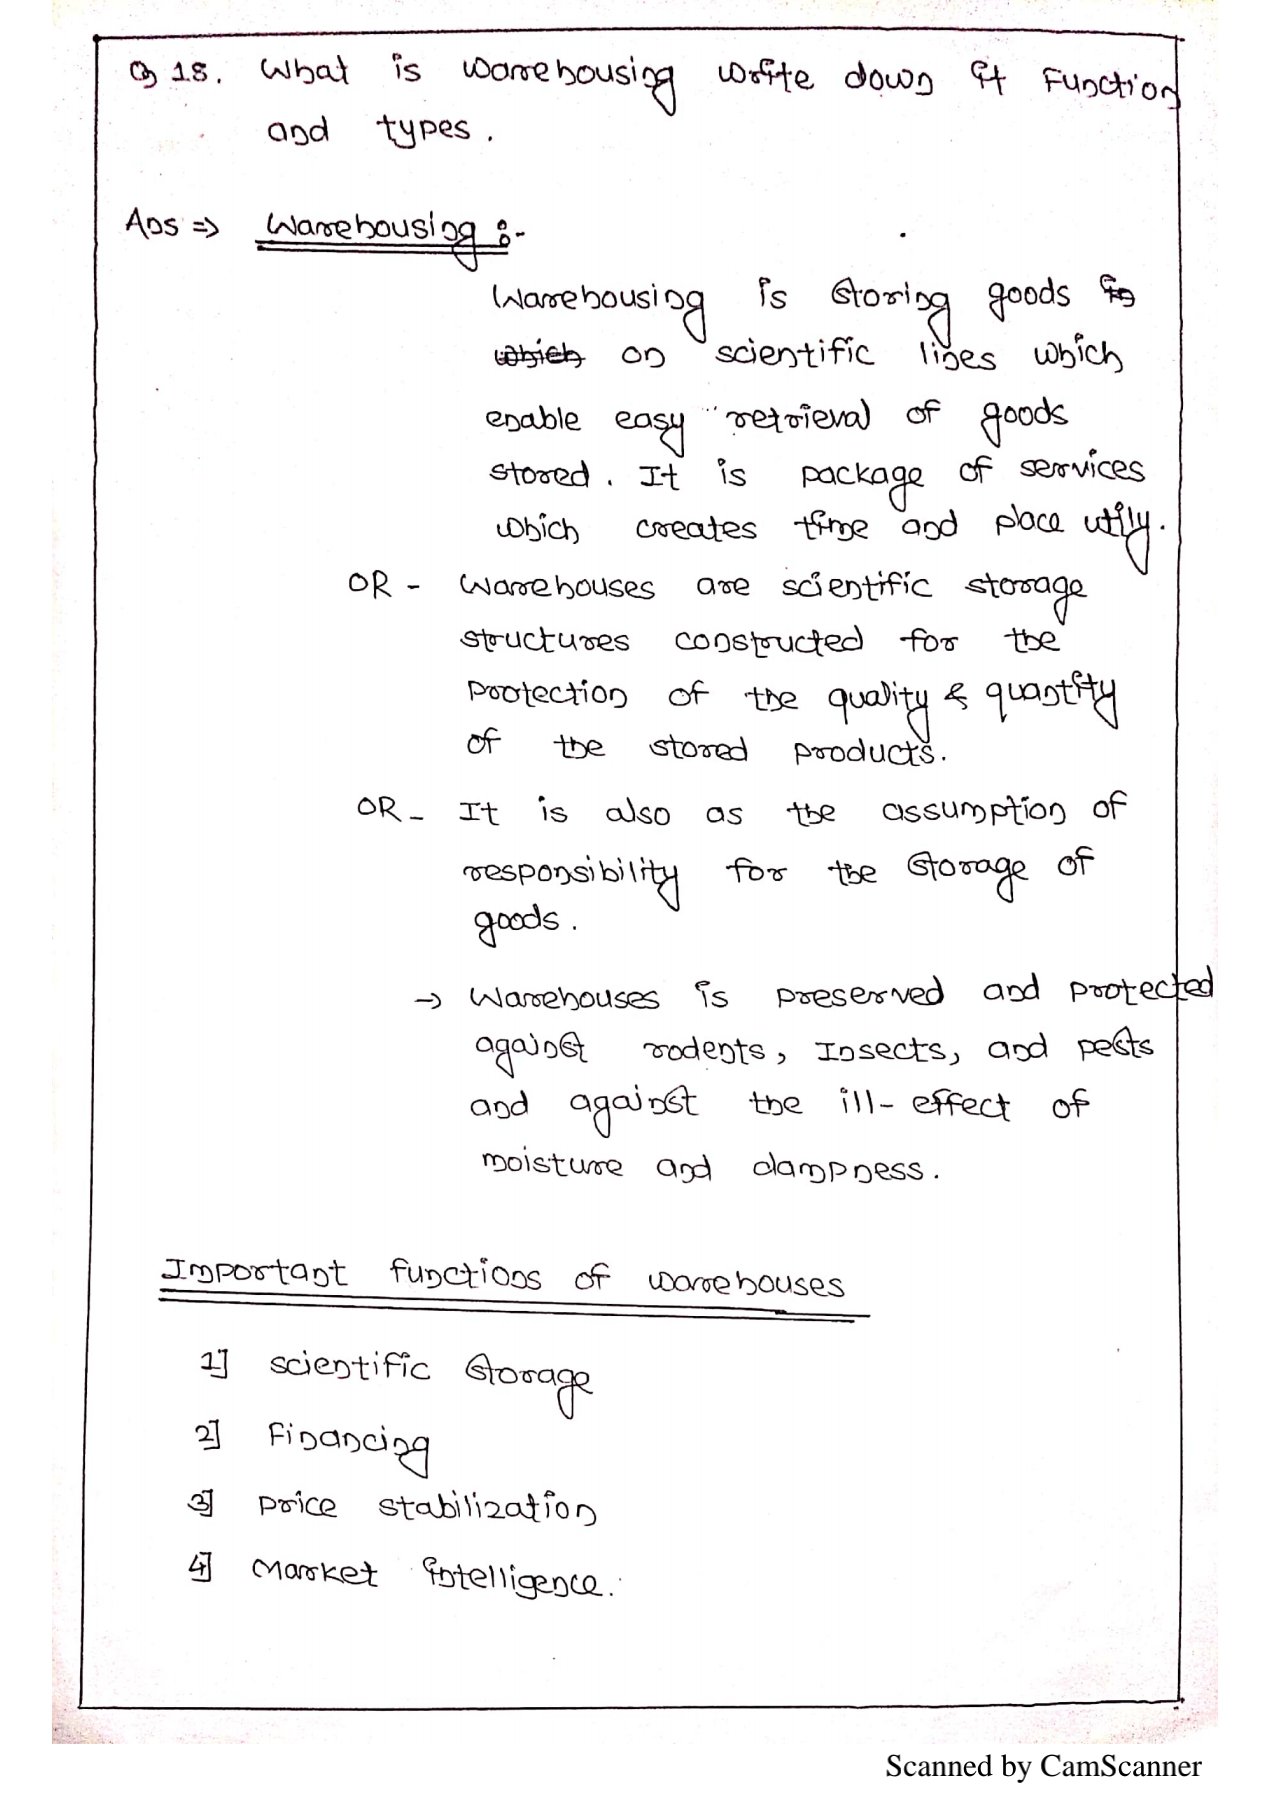 Q 18. What is warehousing write down it Function
and types.
Ans ⇒ Warehousing :-
Warehousing is storing goods in
which on scientific lines which
enable easy retrieval of goods
stored. It is package of services
which creates time and place utily.
OR - Warehouses are scientific storage
structures constructed for the
protection of the quality & quantity
of the stored products.
OR - It is also as the assumption of
responsibility for the storage of
goods.
→ Warehouses is preserved and protected
against rodents, Insects, and pests
and against the ill-effect of
moisture and dampness.
Important functions of warehouses
1] scientific storage
2] Financing
3] price stabilization
4] Market intelligence.
Scanned by CamScanner